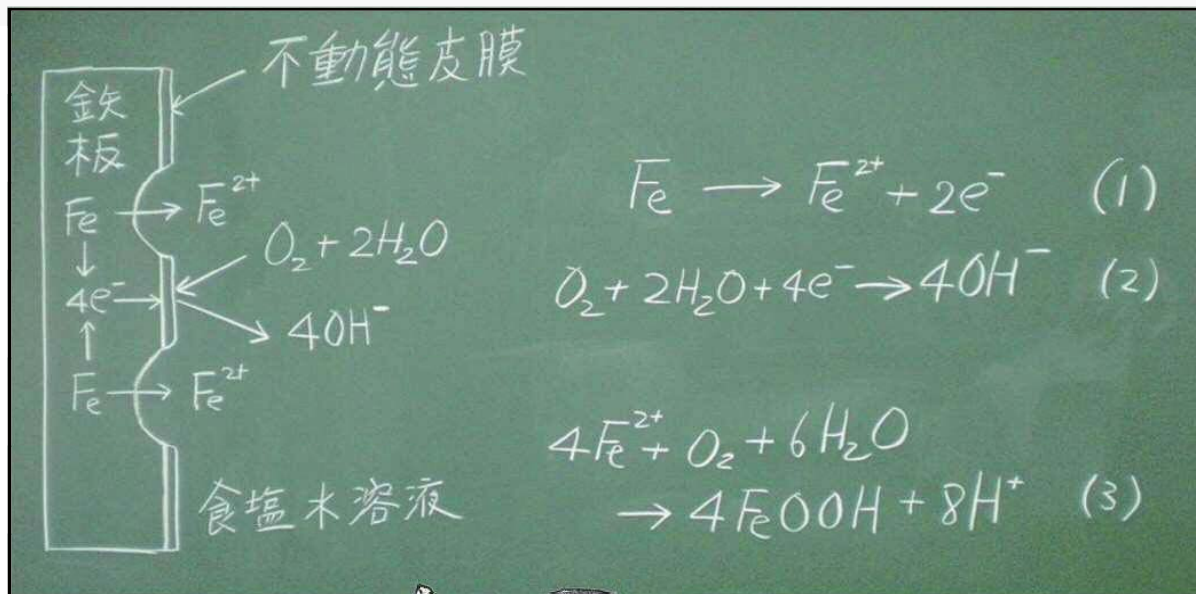 不動態皮膜
鉄
板
Fe → Fe²⁺
↓
4e⁻ →
↑
Fe → Fe²⁺
O₂ + 2H₂O
4OH⁻
食塩水溶液
Fe → Fe²⁺ + 2e⁻ (1)
O₂ + 2H₂O + 4e⁻ → 4OH⁻ (2)
4Fe²⁺ + O₂ + 6H₂O
→ 4FeOOH + 8H⁺ (3)